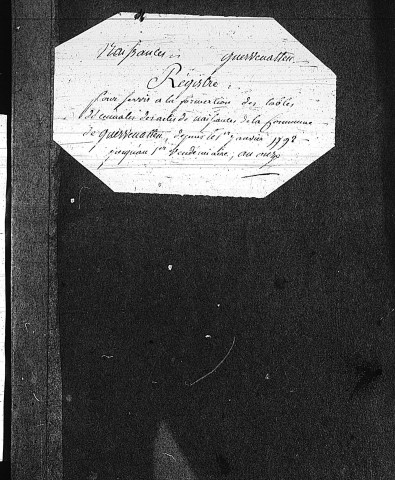 Naissances quesvenatten
Régistre,
Pour servir a la formation des tables
Décennales des actes de naissances de la Commune
de quesvenatten, depuis le 1er janvier 1792
jusquau 1er Vendémiaire, an onze